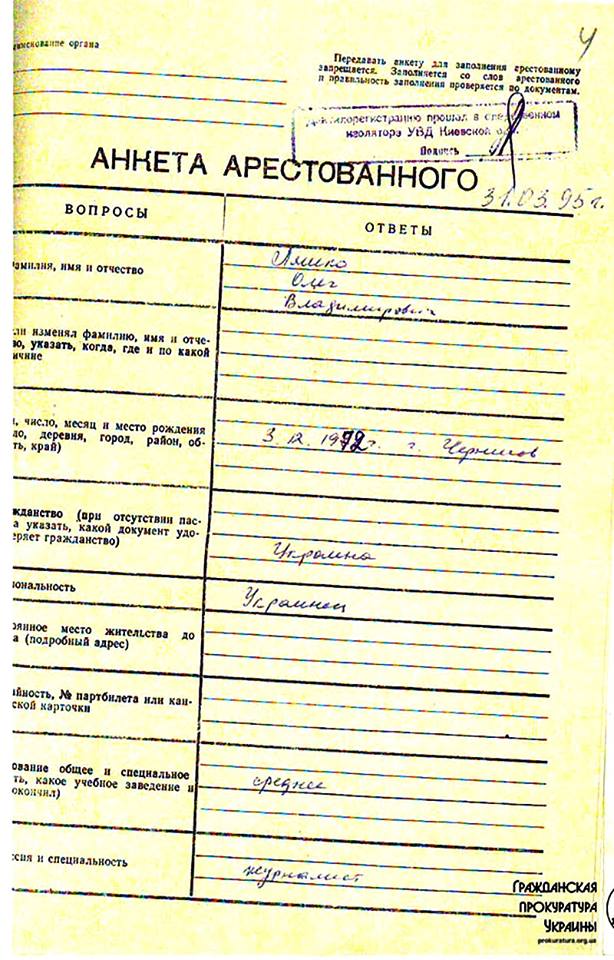 именование органа
4
Передавать анкету для заполнения арестованному
запрещается. Заполняется со слов арестованного
и правильность заполнения проверяется по документам.
прошел в следственном
изоляторе УВД Киевской обл.
Подпись
АНКЕТА АРЕСТОВАННОГО
31.03.95г.
ВОПРОСЫ
ОТВЕТЫ
амилия, имя и отчество
Ляшко
Олег
Владимирович
ли изменял фамилию, имя и отче-
во, указать, когда, где и по какой
ичине
, число, месяц и место рождения
ло, деревня, город, район, об-
ть, край)
3. 12. 1972г. г. Чернигов
жданство (при отсутствии пас-
а указать, какой документ удо-
еряет гражданство)
Украина
иональность
Украинец
оянное место жительства до
а (подробный адрес)
ийность, № партбилета или кан-
ской карточки
ование общее и специальное
ть, какое учебное заведение и
окончил)
среднее
ссия и специальность
журналист
ГРАЖДАНСКАЯ
ПРОКУРАТУРА
УКРАИНЫ
prokuratura.org.ua